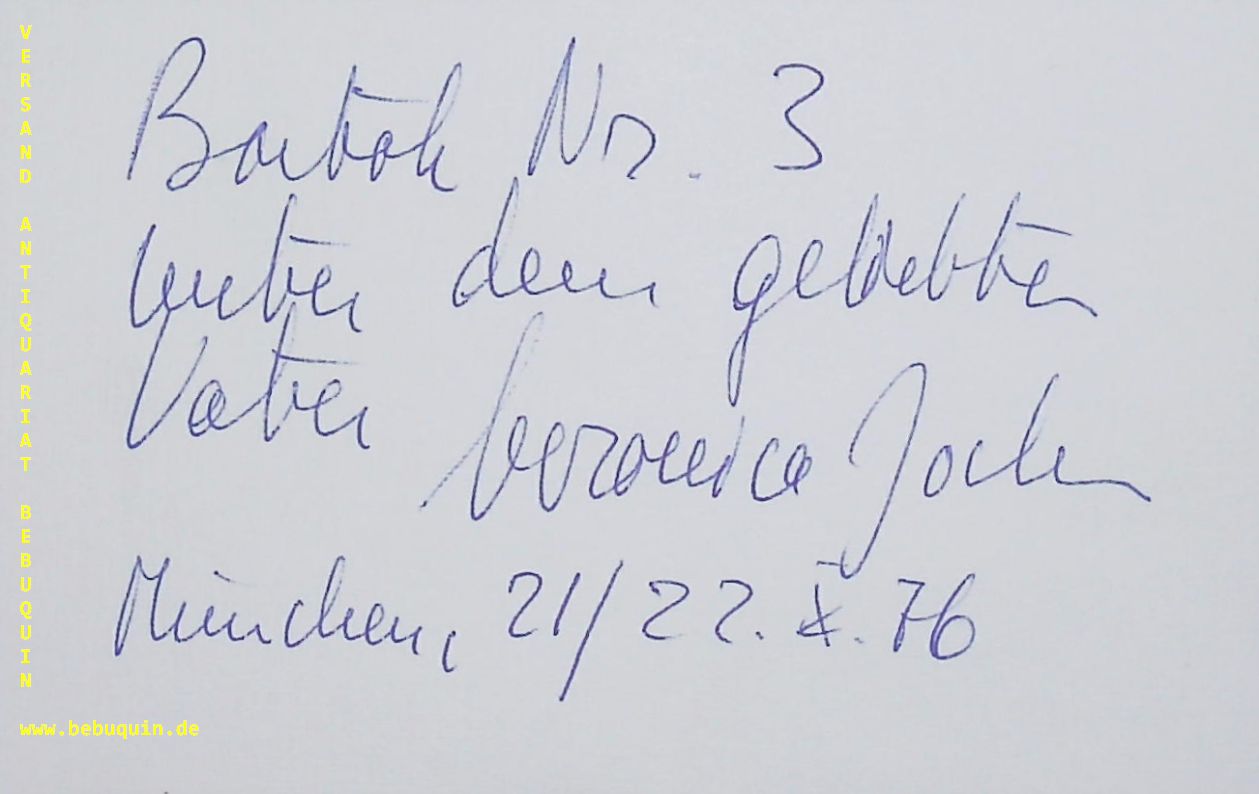 Bartók Nr. 3
unter dem geliebten
Vater Veronica Jochum
München, 21/22. X. 76
VERSAND ANTIQUARIAT BEBUQUIN
www.bebuquin.de